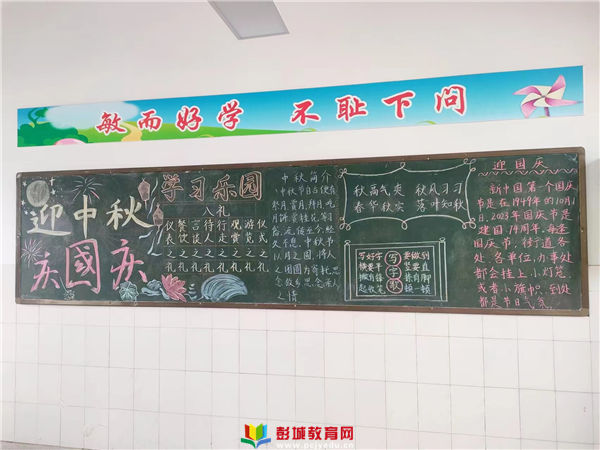 敏而好学 不耻下问
迎中秋
庆國庆
学习乐园
八礼
仪表之礼
餐饮之礼
言谈之礼
待人之礼
行走之礼
观赏之礼
游览之礼
仪式之礼
中秋简介
中秋节自古便有
祭月、赏月、拜月、吃
月饼、赏桂花等习
俗，流传至今，经
久不息。中秋节
以月之圆，
之团圆为寄托思
念故乡，思念亲人
之情
秋高气爽 秋风习习
春华秋实 落叶知秋
写字歌
写好字
要做到
横要平
竖要直
撇有锋
捺有脚
起收笔
顿一顿
迎国庆
新中国第一个国庆
节是在1949年的10月1
日，2023年国庆节是
建国74周年，每逢
国庆节，街道各
处、各单位，办事处
都会挂上小灯笼，
或者小旗帜，到处
都是节日气氛
彭城教育网
www.pcjyedu.cn